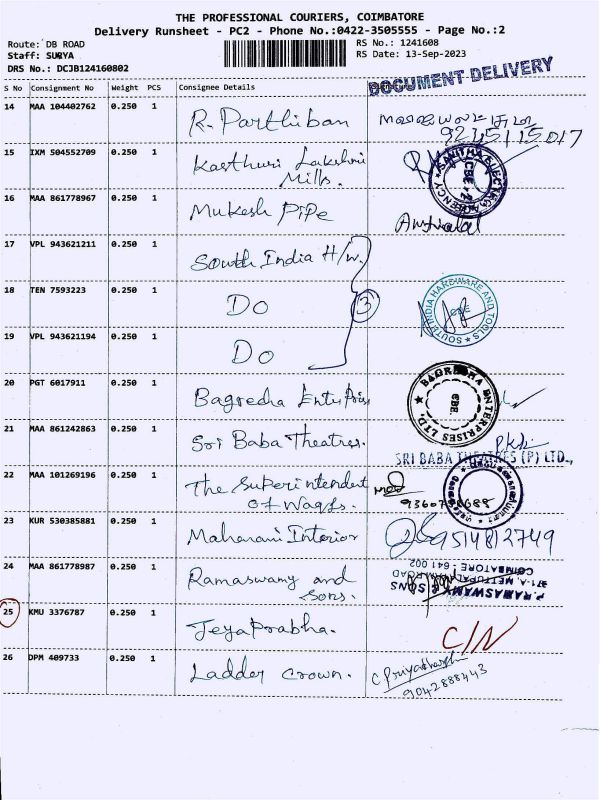 THE PROFESSIONAL COURIERS, COIMBATORE
Delivery Runsheet - PC2 - Phone No.:0422-3505555 - Page No.:2
Route: DB ROAD RS No.: 1241608
Staff: SURYA RS Date: 13-Sep-2023
DRS No.: DCJB124160802
DOCUMENT DELIVERY
S No Consignment No Weight PCS Consignee Details
14 MAA 104402762 0.250 1 R. Parthiban
15 IXM 504552709 0.250 1 Kasthuri Lakshmi
Mills.
SANITHA ELECTRIC AGENCY CBE-2
16 MAA 861778967 0.250 1 Mukesh Pipe
17 VPL 943621211 0.250 1 South India H/w.
18 TEN 7593223 0.250 1 Do 3
SOUTH INDIA HARDWARE AND TOOLS
19 VPL 943621194 0.250 1 Do
20 PGT 6017911 0.250 1 Bagrecha Enterprises
BAGRECHA ENTERPRISES LTD. CBE.
21 MAA 861242863 0.250 1 Sri Baba Theatres.
SRI BABA THEATRES (P) LTD.,
22 MAA 101269196 0.250 1 The Superintendent
of Waqfs.
23 KUR 530385881 0.250 1 Maharani Interior 9514812749
24 MAA 861778987 0.250 1 Ramaswamy and
Sons.
P.RAMASWAMY & SONS
371-A, METTUPALAYAM ROAD
COIMBATORE - 641 002
25 KMU 3376787 0.250 1 Jeya Prabha. C/N
26 DPM 409733 0.250 1 Ladder Crown. C Priyadharsh
9042888443